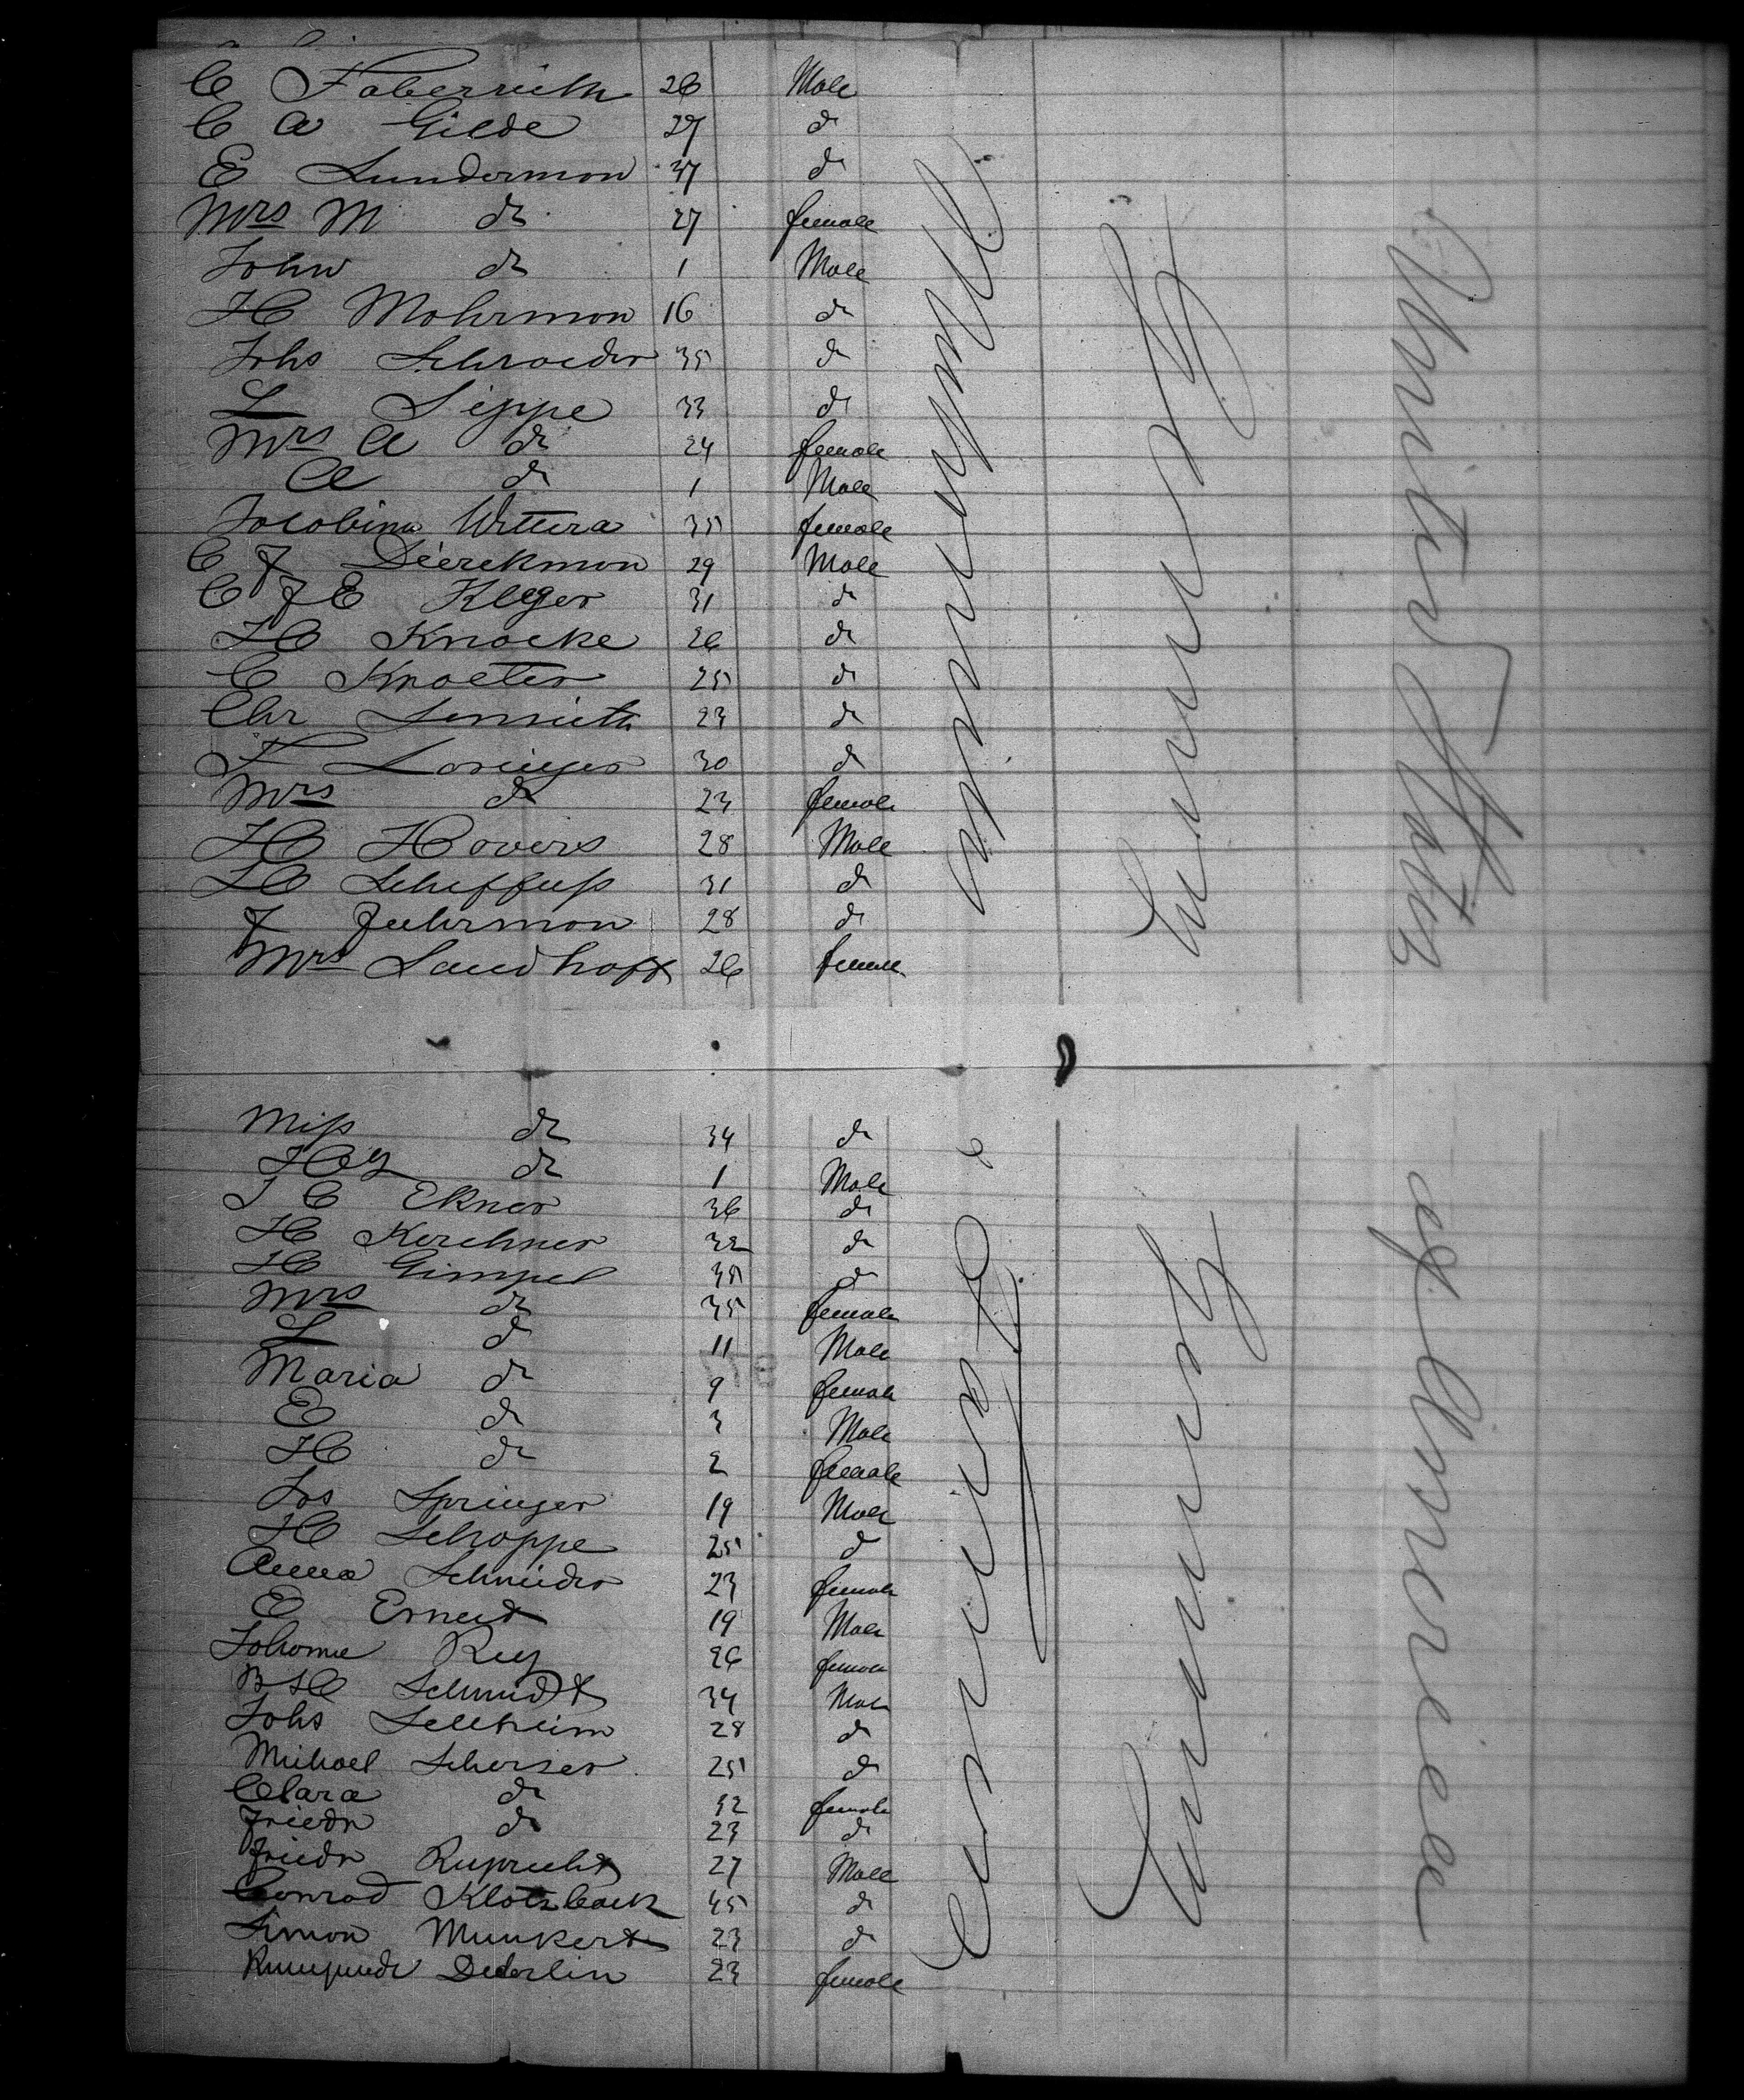 C Faberrieth 26 Male
C A Gilde 27 do
E Lundermon 37 do
Mrs M do 27 female
John do 1 Male
H Mohrmon 16 do
Johs Schroeder 35 do
L Lippe 33 do
Mrs A do 24 female
A do 1 Male
Jacobina 35 female
C F Dierckmon 29 Male
C F E 31 do
H Knocke 26 do
E Knoeter 25 do
Chr 23 do
F 30 do
Mrs do 23 female
H Hovers 28 Male
H Scheffuss 31 do
F Fuhrmon 28 do
Mrs Landhoff 26 female
Miss do 34 do
Hy do 1 Male
J C Ekner 36 do
H Kerchner 32 do
H Gimpel 35 do
Mrs do 35 female
L do 11 Male
Maria do 9 female
E do 3 Male
H do 2 female
Jos Springer 19 Male
H Schoppe 25 do
Anna Schneider 23 female
E Ernest 19 Male
Johanne Rey 26 female
B H Schmidt 34 Male
Johs Sellheim 28 do
Michael Scherzer 25 do
Clara do 32 female
Friedr do 23 do
Friedr Ruprecht 27 Male
Conrad Klotzback 45 do
Simon Munkert 23 do
Dederlin 23 female
Germany
Germany
United States
of America